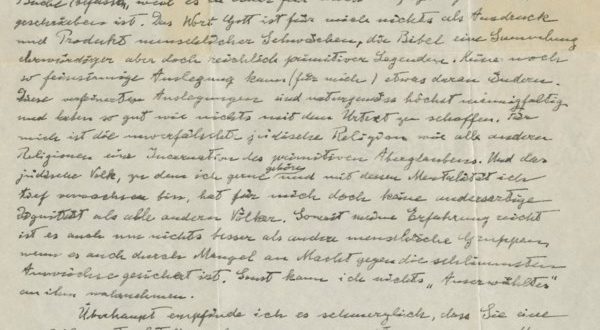 Buche befassen, weil es in einer für
geschrieben ist. Das Wort Gott ist für mich nichts als Ausdruck
und Produkt menschlicher Schwächen, die Bibel eine Sammlung
ehrwürdiger aber doch reichlich primitiver Legenden. Keine noch
so feinsinnige Auslegung kann (für mich) etwas daran ändern.
Diese verfeinerten Auslegungen sind naturgemäss höchst mannigfaltig
und haben so gut wie nichts mit dem Urtext zu schaffen. Für
mich ist die unverfälschte jüdische Religion wie alle anderen
Religionen eine Incarnation des primitiven Aberglaubens. Und das
jüdische Volk, zu dem ich gerne gehöre und mit dessen Mentalität ich
tief verwachsen bin, hat für mich doch keine andersartige
Dignität als alle anderen Völker. Soweit meine Erfahrung reicht
ist es auch um nichts besser als andere menschliche Gruppen
wenn es auch durch Mangel an Macht gegen die schlimmsten
Auswüchse gesichert ist. Sonst kann ich nichts „Auserwähltes“
an ihm wahrnehmen.
Überhaupt empfinde ich es schmerzlich, dass Sie eine